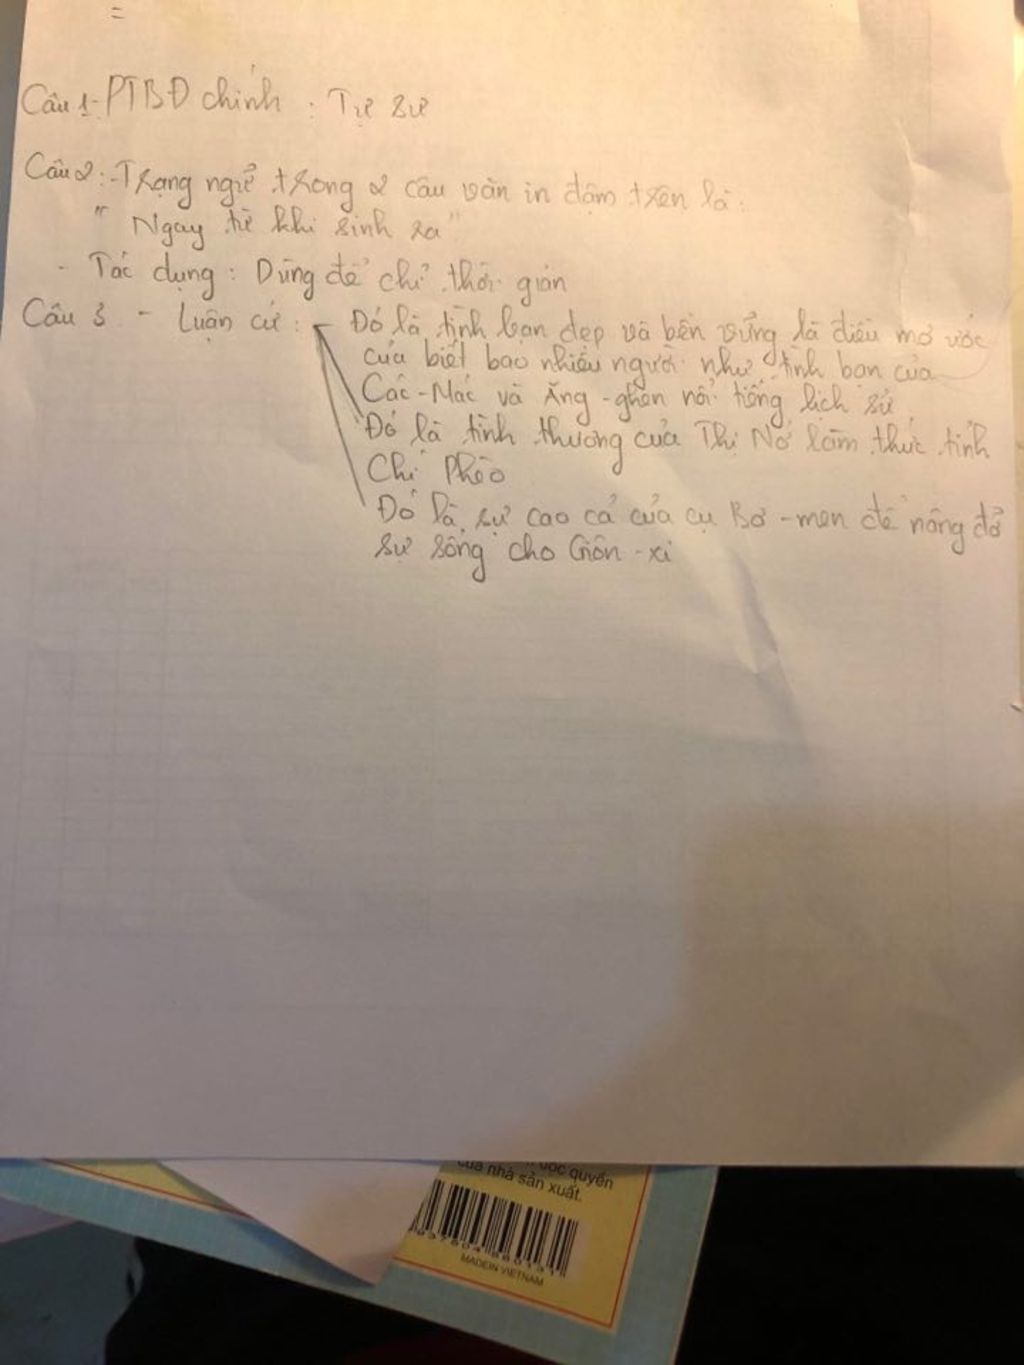 =
Câu 1: PTBĐ chính : Tự sự
Câu 2: - Trạng ngữ trong 2 câu văn in đậm trên là:
" Ngay từ khi sinh ra "
- Tác dụng : Dùng để chỉ thời gian
Câu 3 - Luận cứ : - Đó là tình bạn đẹp và bền vững là điều mơ ước
của biết bao nhiêu người như tình bạn của
Các-Mác và Ăng-ghen nổi tiếng lịch sử
Đó là tình thương của Thị Nở làm thức tỉnh
Chí Phèo
Đó là sự cao cả của cụ Bơ-men để nâng đỡ
sự sống cho Giôn-xi
ước quyền
của nhà sản xuất.
MADEIN VIETNAM